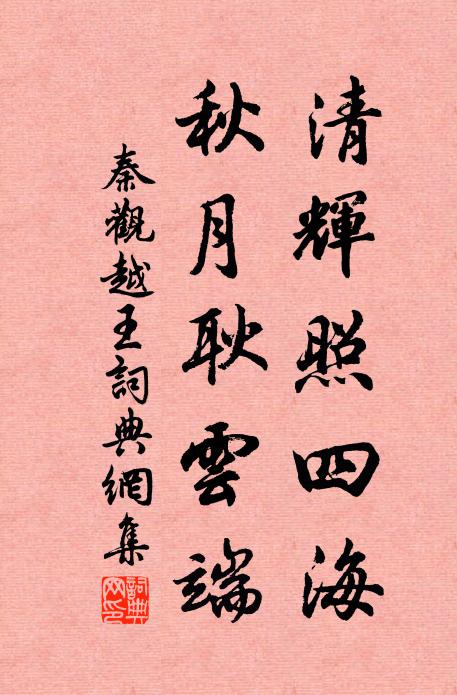 清輝照四海
秋月耿雲端
秦觀越王詞典網集
詞典網印